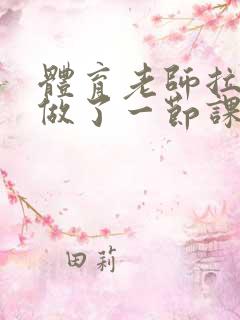 體育老師拉
做了一節課
田莉